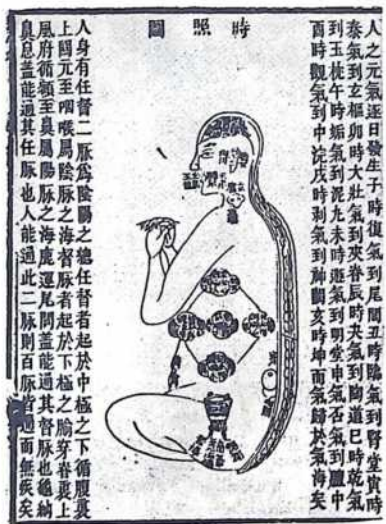 時照圖
人之元氣逐日發生子時復氣到尾閭丑時臨氣到腎堂寅時
泰氣到玄樞卯時大壯氣到夾脊辰時夬氣到陶道巳時乾氣
到玉枕午時姤氣到泥丸未時遯氣到明堂申氣否氣到膻中
酉時觀氣到中脘戌時剝氣到神闕亥時坤而氣歸於氣海矣
人身有任督二脉為陰陽之總任督者起於中極之下循腹裏
上關元至咽喉屬陰脉之海督脉者起於下極之腧穿脊裏上
風府循額至鼻屬陽脉之海鹿運尾閭蓋能通其督脉也龜納
鼻息蓋能通其任脉也人能通此二脉則百脉皆通而無疾矣